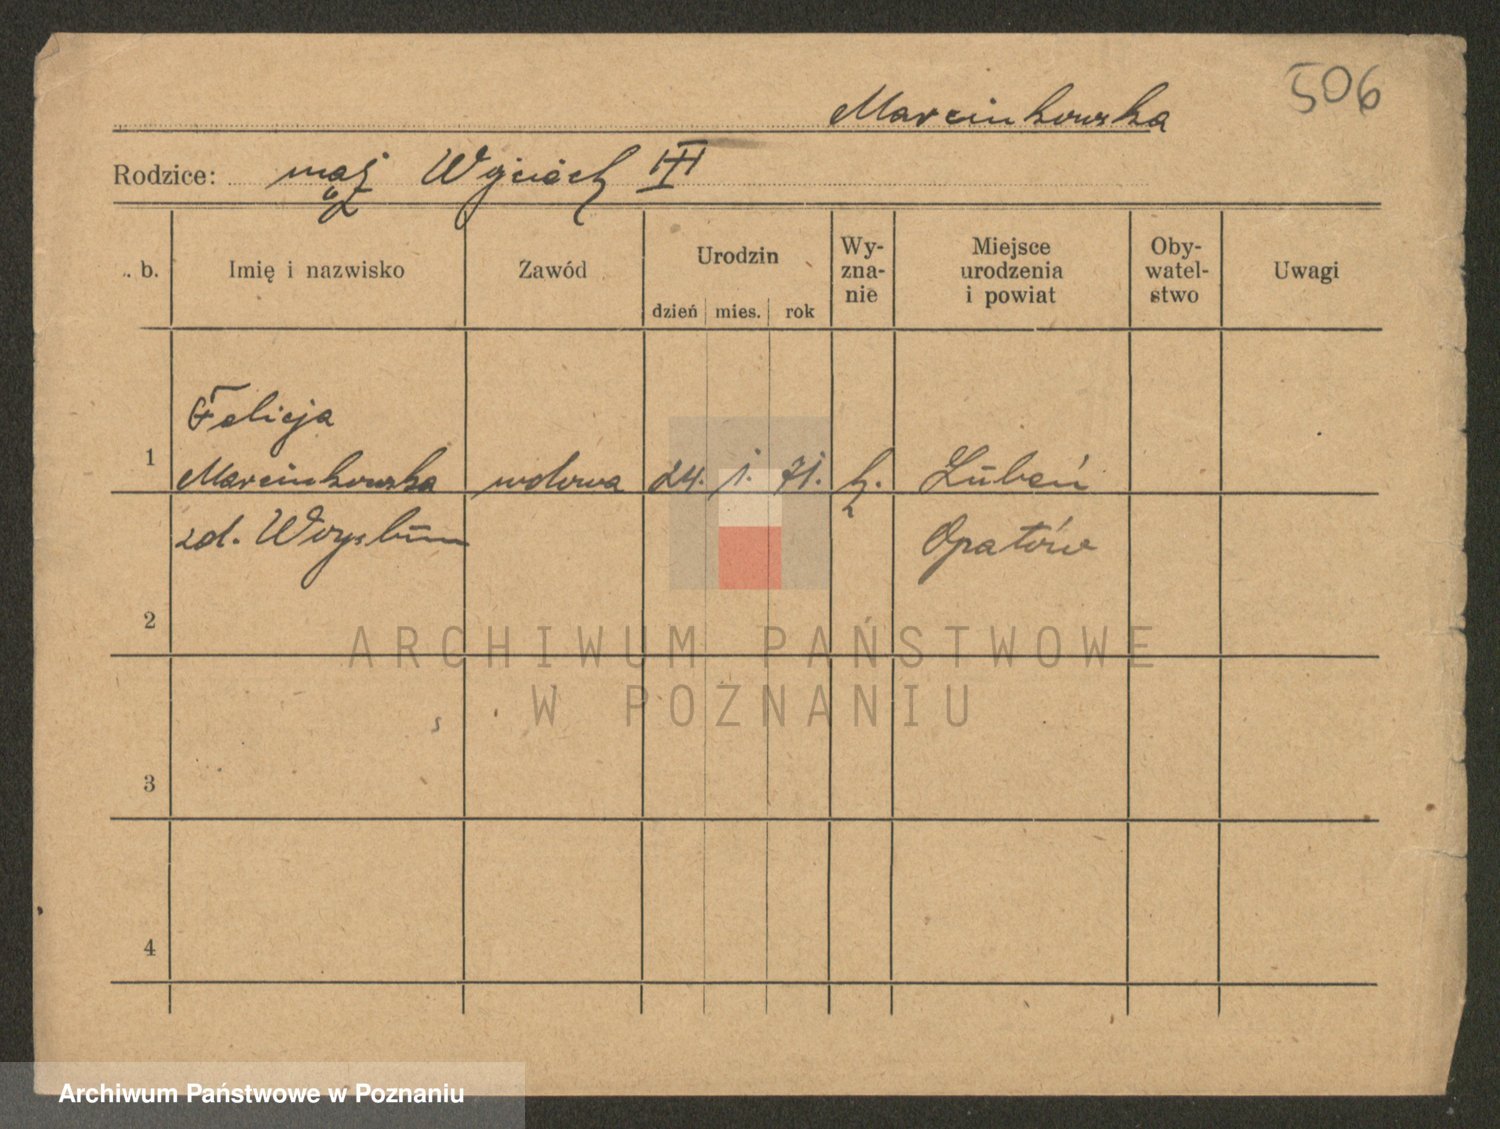 506
Marcinkowska
Rodzice: mąż Wojciech III
. b. Imię i nazwisko Zawód Urodzin Wy- Miejsce Oby- Uwagi
zna- urodzenia watel-
nie i powiat stwo
dzień mies. rok
Felicja
1 Marcinkowska wdowa 24. 1. 71. k. Lubań
zd. Opatów
2
ARCHIWUM PAŃSTWOWE
W POZNANIU
3
4
Archiwum Państwowe w Poznaniu